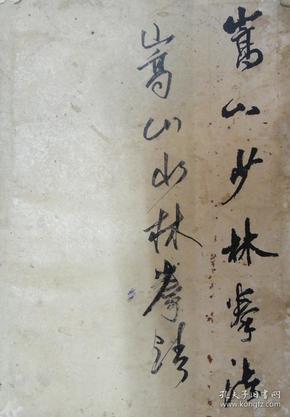 嵩山少林拳法
嵩山少林拳法
孔夫子旧书网